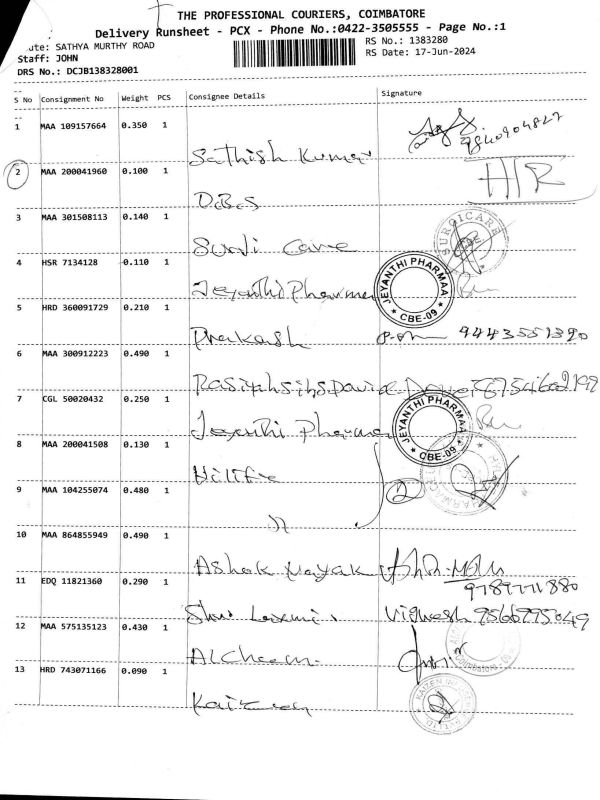 THE PROFESSIONAL COURIERS, COIMBATORE
Delivery Runsheet - PCX - Phone No.:0422-3505555 - Page No.:1
ute: SATHYA MURTHY ROAD RS No.: 1383280
Staff: JOHN RS Date: 17-Jun-2024
DRS No.: DCJB138328001
S No Consignment No Weight PCS Consignee Details Signature
1 MAA 109157664 0.350 1
Sathish Kumar
2 MAA 200041960 0.100 1 H/R
D.B.S
3 MAA 301508113 0.140 1 SURGICARE
Care
4 HSR 7134128 0.110 1 JEYANTHI PHARMAA
Jeyanthi Pharma * CBE-09 *
5 HRD 360091729 0.210 1
Prakash 9443551390
6 MAA 300912223 0.490 1
7 CGL 50020432 0.250 1 JEYANTHI PHARMAA
Jeyanthi Pharma * CBE-09 *
8 MAA 200041508 0.130 1
Hilife 2
9 MAA 104255074 0.480 1
10 MAA 864855949 0.490 1
Ashok Nayak
11 EDQ 11821360 0.290 1 9789771880
Laxmi Vignesh 9566995049
12 MAA 575135123 0.430 1
Alcheem
13 HRD 743071166 0.090 1 KAIZEN
Kaizen